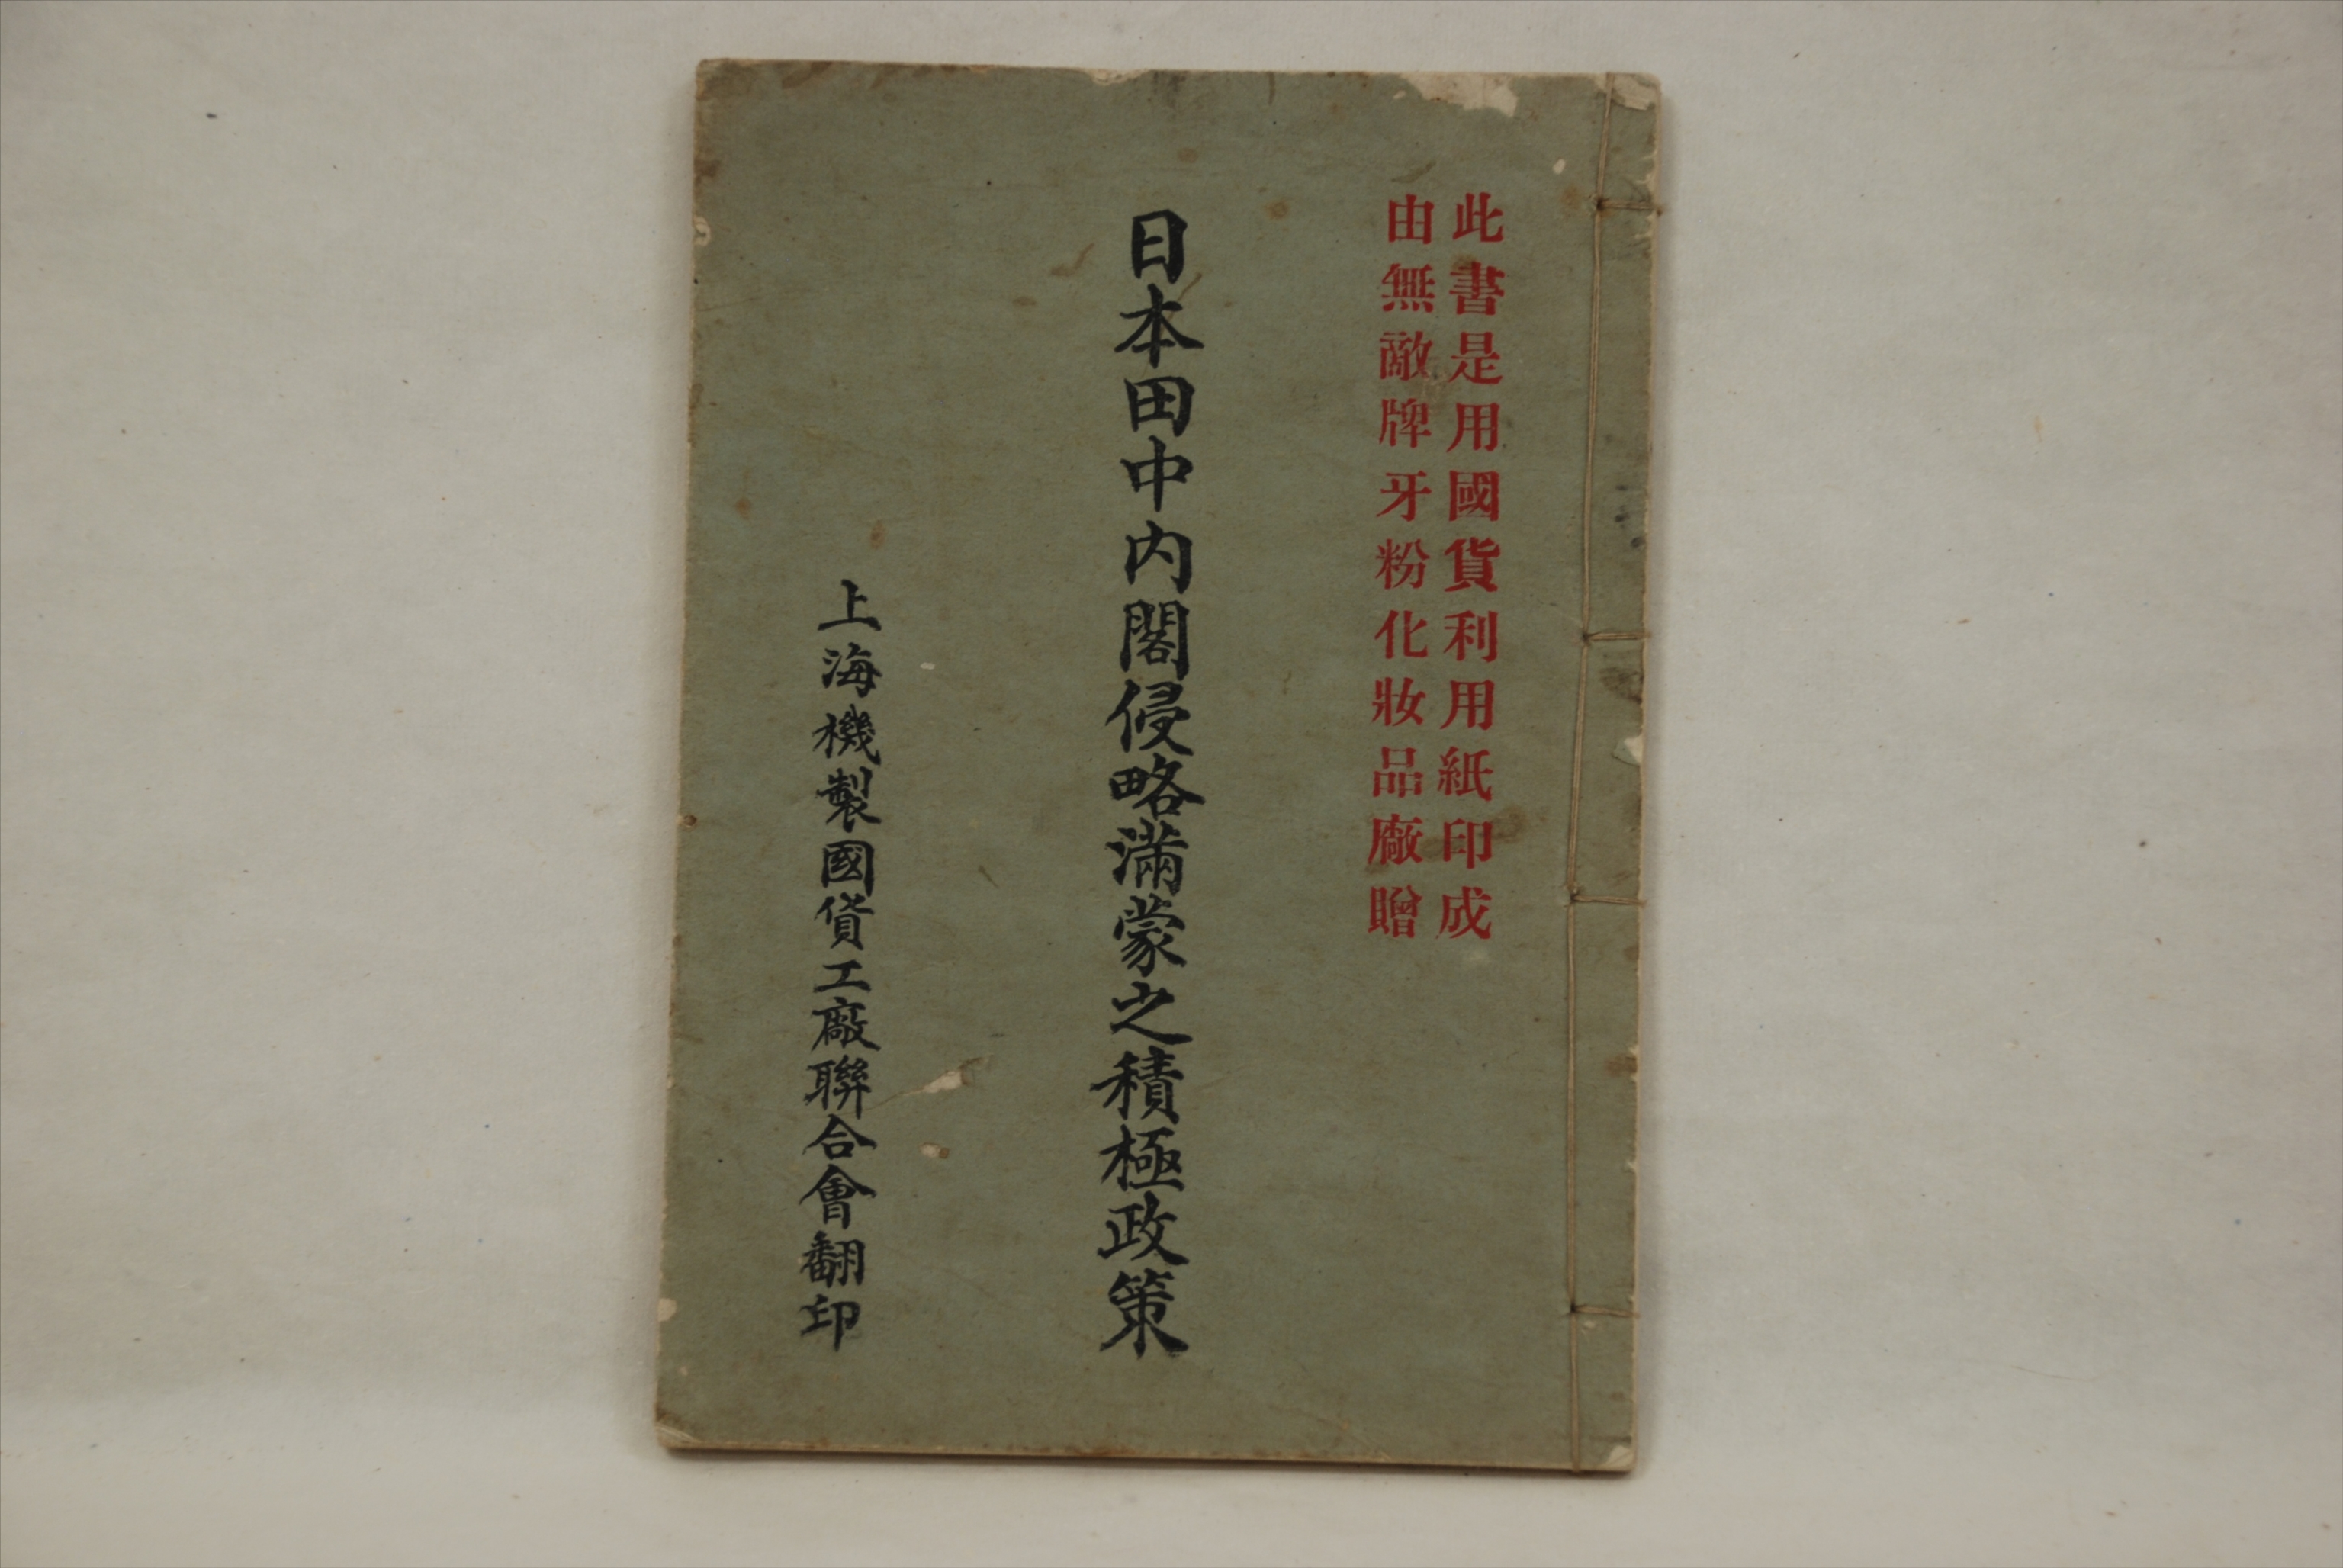 此書是用國貨利用紙印成
由無敵牌牙粉化妝品廠贈
日本田中内閣侵略滿蒙之積極政策
上海機製國貨工廠聯合會翻印